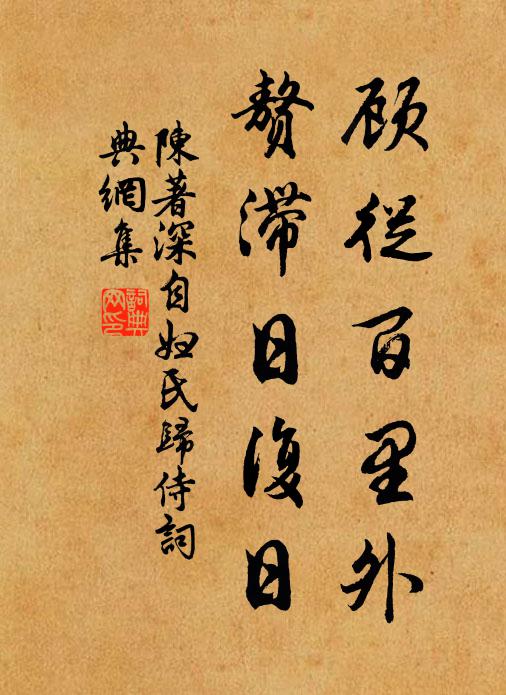 顾従百里外
贅滯日復日
陳著深自妞氏歸侍詞
典網集
詞典
网印